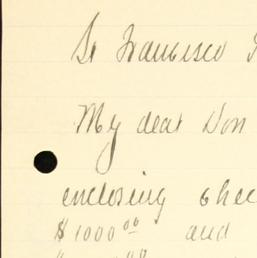 Sn Francisco
My dear Don
enclosing chec
$1000 00 and